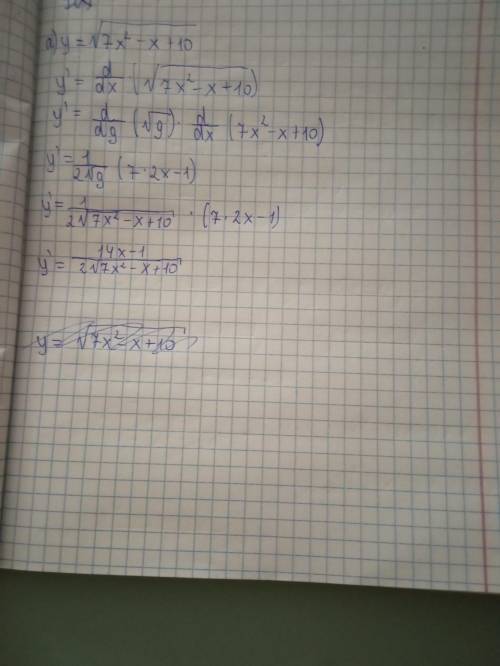 а) y = √7x² - x + 10
y' = d/dx (√7x² - x + 10)
y' = d/dg (√g) · d/dx (7x² - x + 10)
y' = 1/2√g (7 · 2x - 1)
y' = 1/2√7x² - x + 10 · (7 · 2x - 1)
y' = 14x - 1/2√7x² - x + 10
y = √7x² - x + 10